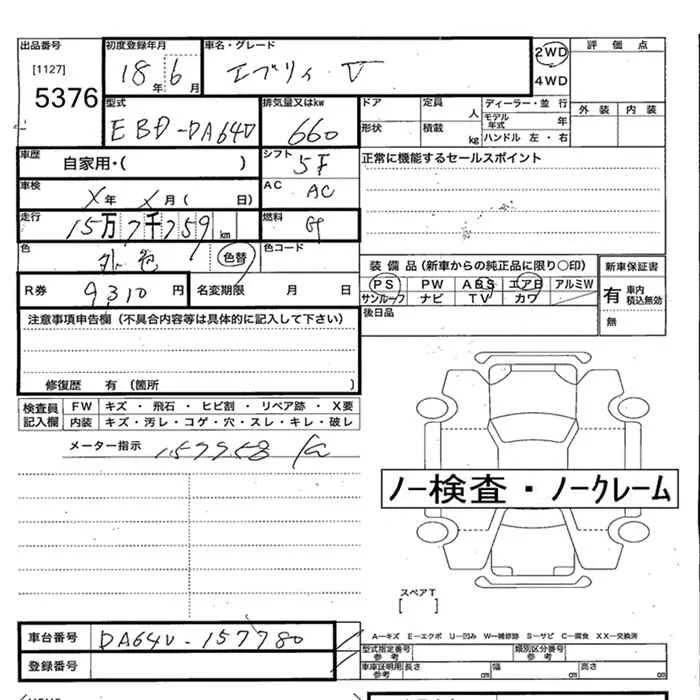 出品番号 初度登録年月 車名・グレード 評 価 点
[1127] 18年 6月 エブリィ V 2WD
5376 4WD 外 装 内 装
型式 排気量又はkw ドア 定員 人 ディーラー・並 行
EBD-DA64V 660 モデル年式 年
形状 積載 kg ハンドル 左・右
車歴 自家用・( ) シフト 5F 正常に機能するセールスポイント
車検 X年 X月( 日) AC AC
走行 15万7千759km 燃料
色 色替 色コード
装 備 品 (新車からの純正品に限り○印) 新車保証書
R券 9,310 円 名変期限 月 日 PS PW ABS エアB アルミW 有 車内積込無効
サンルーフ ナビ TV カワ 無
注意事項申告欄(不具合内容等は具体的に記入して下さい) 後日品
修復歴 有 (箇所 )
検査員記入欄 FW キズ・飛石・ヒビ割・リペア跡・X要
内装 キズ・汚レ・コゲ・穴・スレ・キレ・破レ
メーター指示 157758 km
ノー検査・ノークレーム
スペアT
[ ]
車台番号 DA64V-157780 A―キズ E―エクボ U―凹み W―補修跡 S―サビ C―腐食 XX―交換済
登録番号 型式指定番号 参考 類別区分番号 参考
車庫証明用 参考 長さ cm 幅 cm 高さ cm